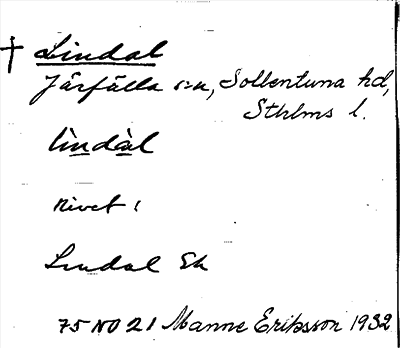 † Lindal
Järfälla sn, Sollentuna hd,
Sthlms l.
lìndàl
Rivet 1
Lindal Ek
75 NO 21 Manne Eriksson 1932